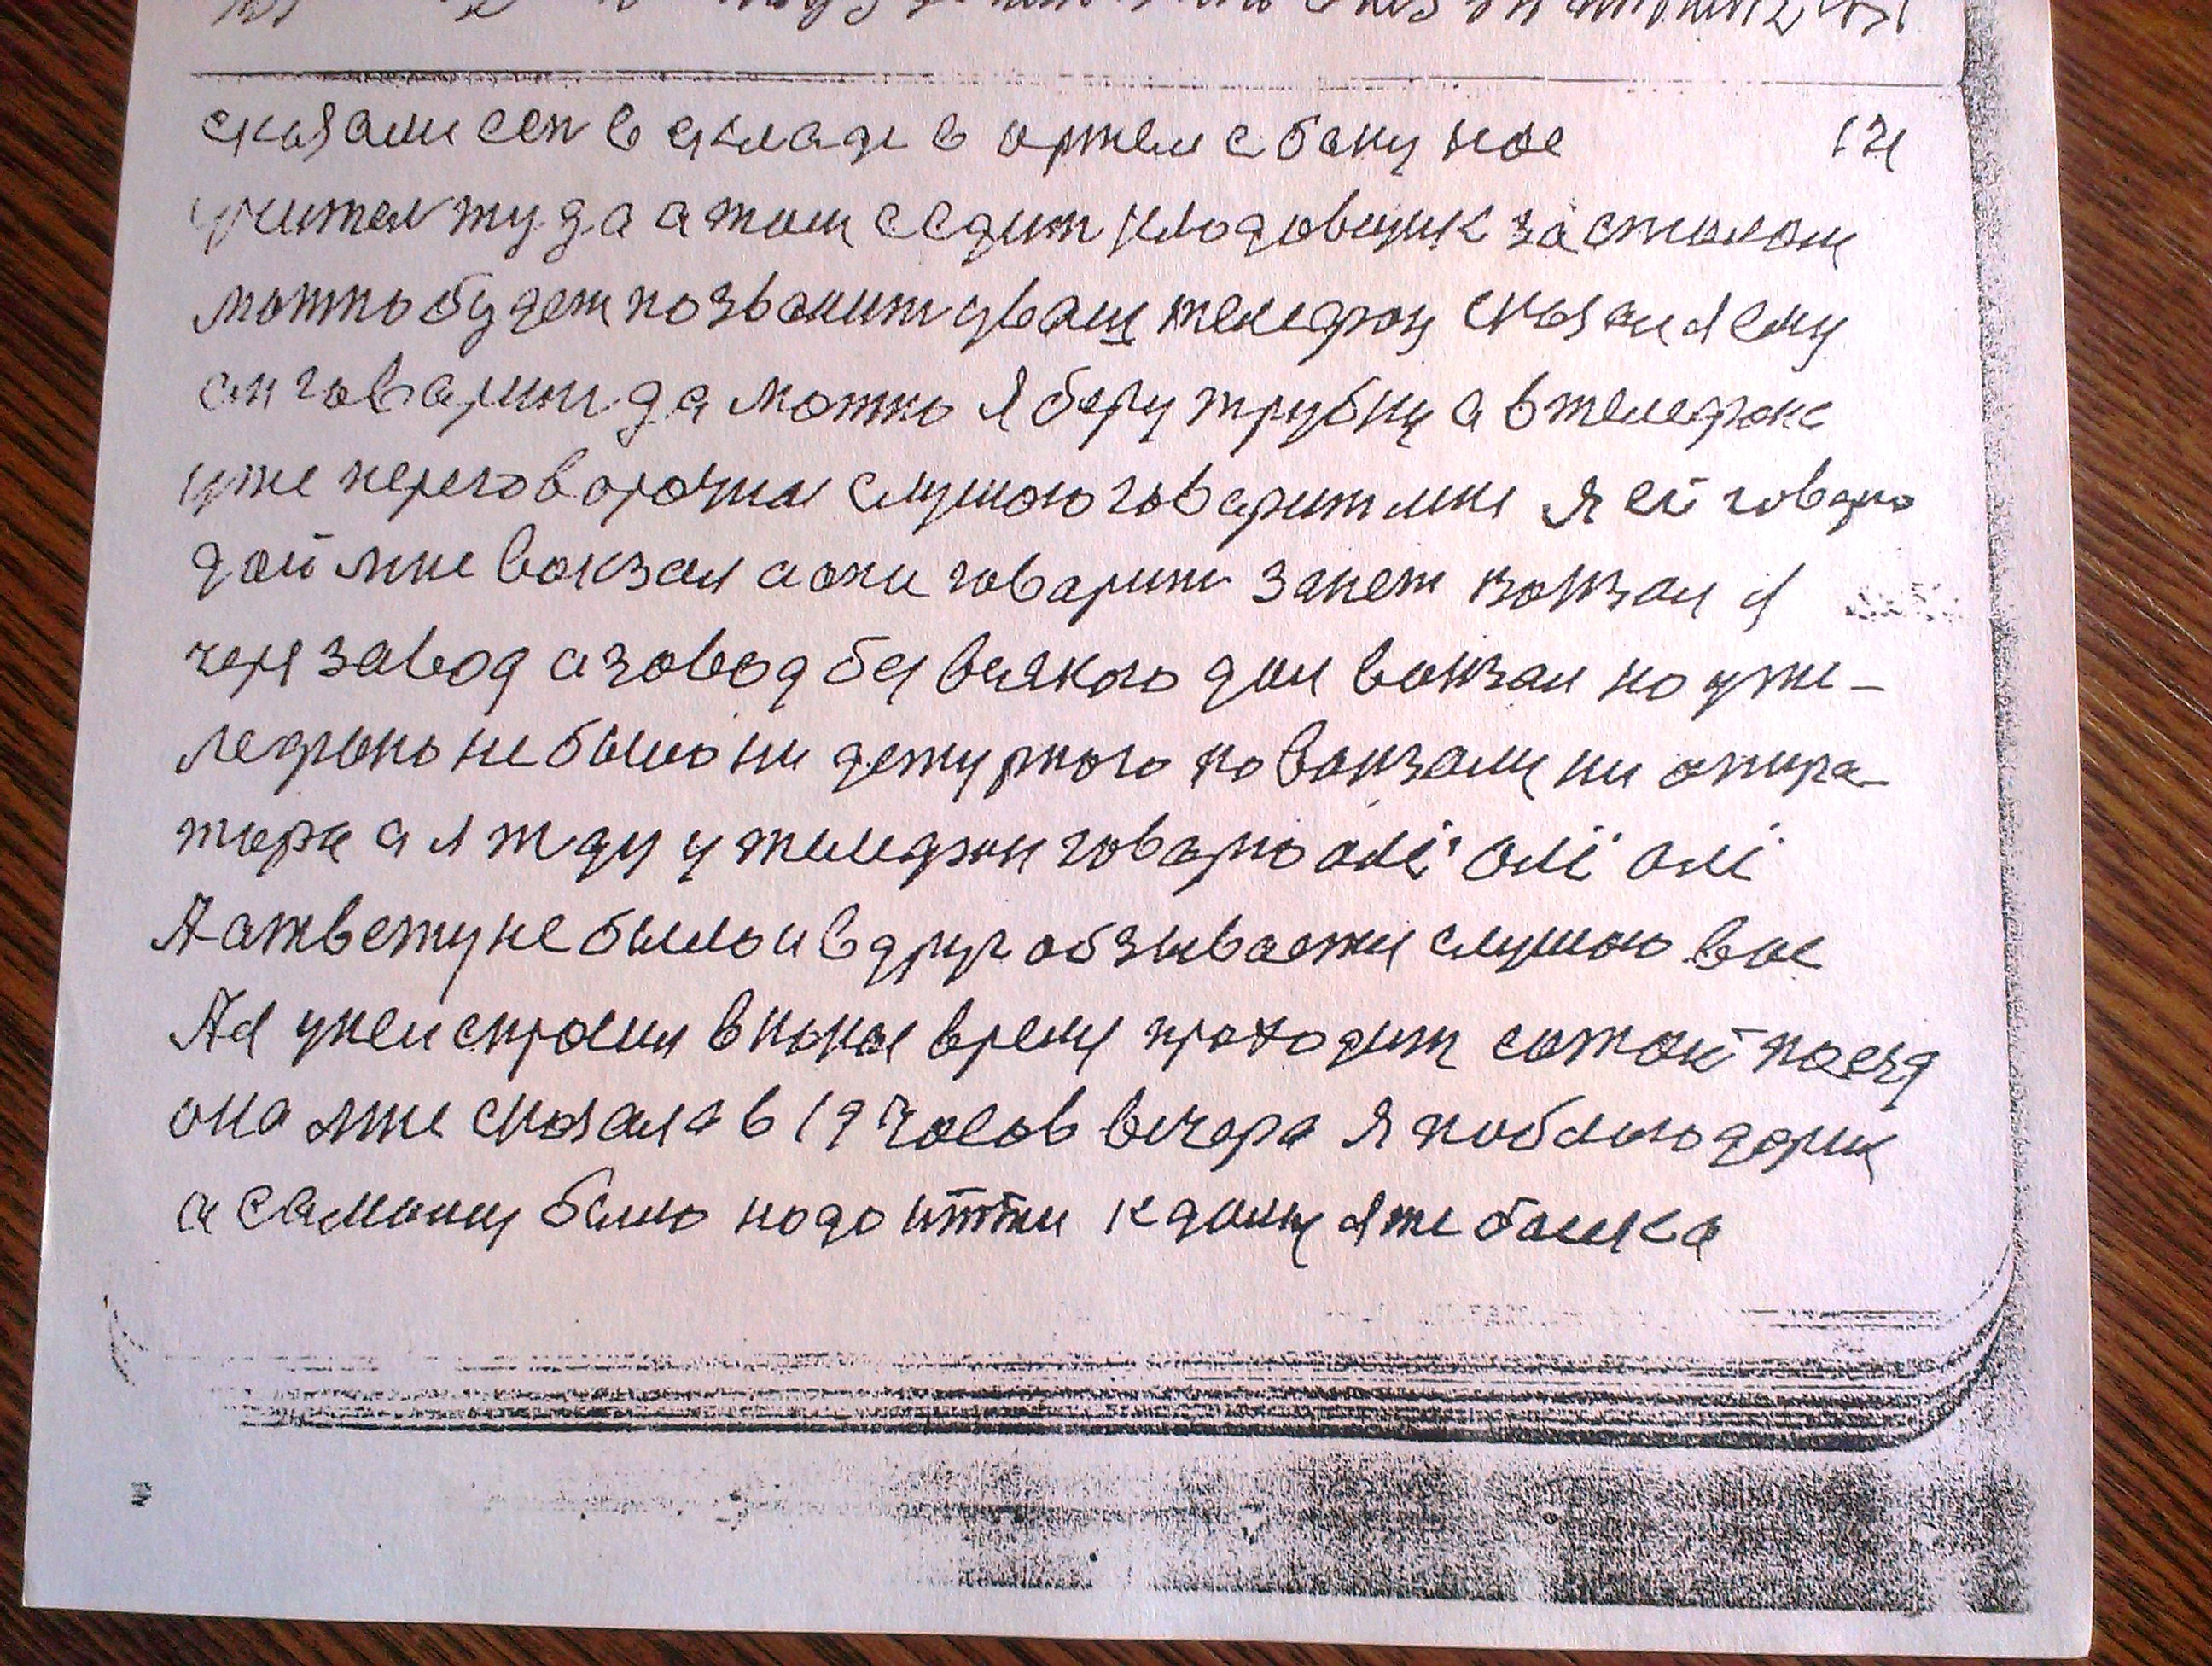 сказали сеп в складе в артели с баку нас
учител туда а там седит кладовщик за сталом
можно будет пазванит у ваш телефон сказал я ему
он говарит да можно я беру трубку а в телефоне
уже переговорочна слушаю говарит мне я ей говарю
дай мне вокзал а она говарит занет вокзал я
через завод а завод без всякого дал вокзал но у те-
лефона не было ни дежурного по вокзалу ни опира-
тора а я жду у телефон говарю алё алё алё
А атвету не было и вдруг обзывается слушаю вас
А я у ней спросил в какое время проходит сажой поезд
она мне сказала в 19 часов вечера я поблагодарил
а самому было надо итти к дому я же башка